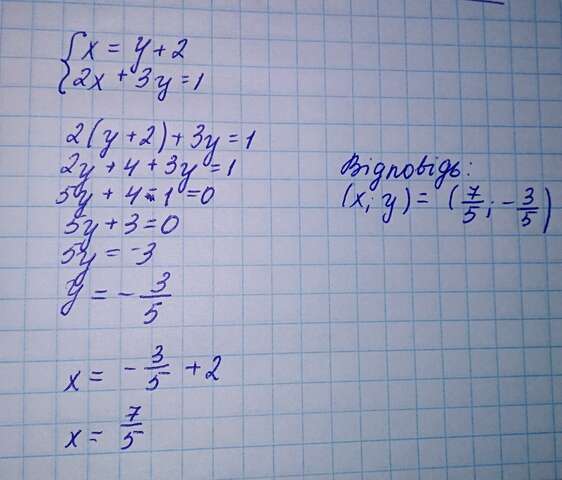 { x = y + 2
2x + 3y = 1
2(y + 2) + 3y = 1
2y + 4 + 3y = 1
5y + 4 - 1 = 0
5y + 3 = 0
5y = -3
y = - 3/5
x = - 3/5 + 2
x = 7/5
Відповідь:
(x; y) = (7/5; - 3/5)